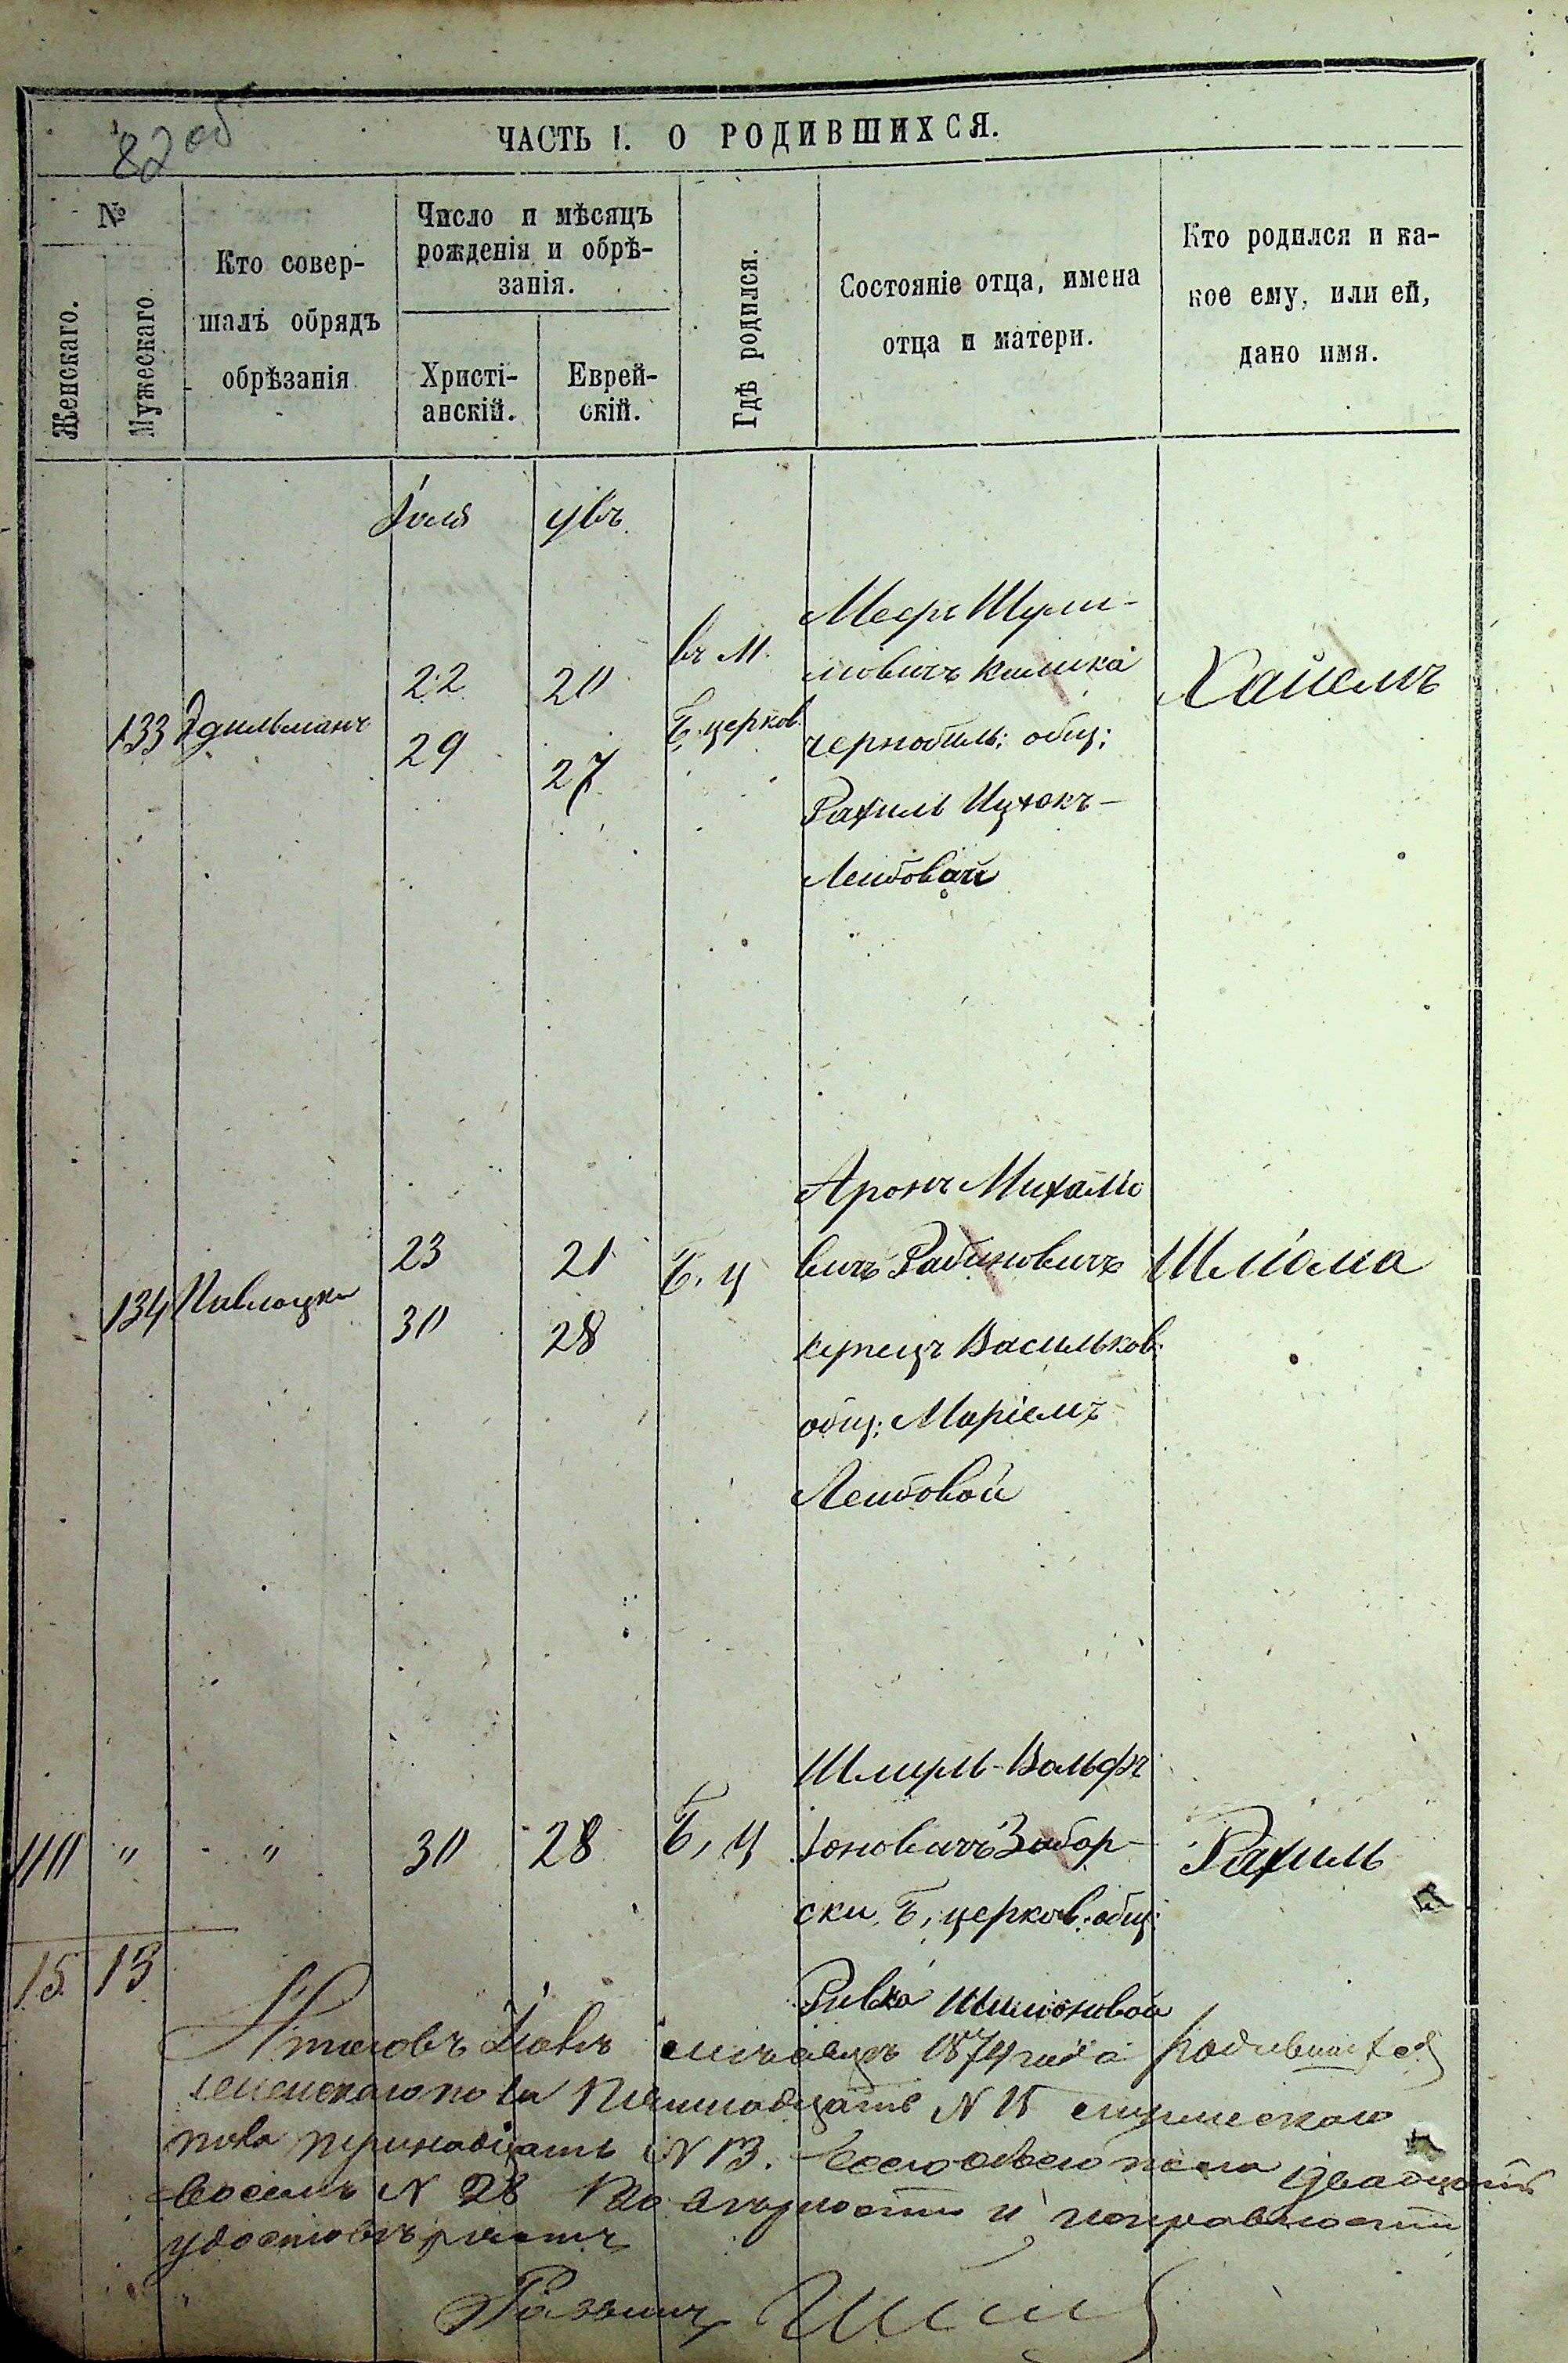 82об
ЧАСТЬ I. О РОДИВШИХСЯ.
№
Женскаго.
Мужескаго.
Кто совер-
шалъ обрядъ
обрѣзанія
Число и мѣсяцъ
рожденія и обрѣ-
занія.
Христі-
анскій.
Еврей-
скій.
Гдѣ родился.
Состояніе отца, имена
отца и матери.
Кто родился и ка-
кое ему, или ей,
дано имя.
Іюля
133 Эдильманъ
22
29
20
27
въ м.
Б. церков.
Мееръ Шули-
мовичъ
чернобиль: общ:
Рахиль Ицхокъ-
Лейбовой
Хаиемъ
134
23
30
21
28
Б, ц
Аронъ Михаліо
вичъ Рабиновичъ
купецъ Васильков:
общ: Маріемъ
Лейбовой
Шліома
110 " "
30
28
Б, ц
Шмуль-Вольфъ
Іоновичъ Забор-
ски, Б, церков: общ:
Ривка Шимоновой
Рахиль
15 13
1874 года родившихся
женскаго пола пятнадцать N 15 мужескаго
пола тринадцать N 13. Всего обоего пола двадцать
восемь N 28
удостовѣряетъ
Раввинъ